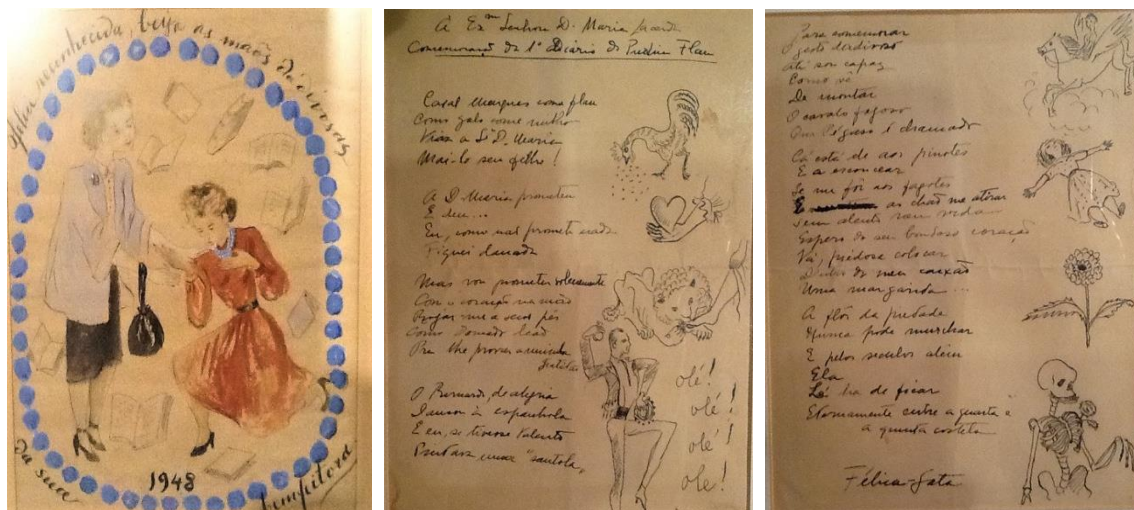 reconhecida, beija as mãos dadivosas
da sua
benfeitora
1948
A Exma Senhora D. Maria
Comemoração do 1º Diário de
Casal Marques come
Como galo come milho
Viva a Sra D. Maria
Mai-lo seu filho!
A D. Maria prometeu
E deu...
Eu, como mal prometi
Fiquei danada
Mas vou prometer solenemente
Com o coração na mão
Rojar-me a seus pés
Como domado leão
Pra lhe provar a minha
O Bernardo, de alegria
Dansou à espanhola
E eu, se tivesse talento
Pintava uma "santola"
olé!
olé!
olé!
olé!
Para comemorar
gesto dadivoso
Até sou capaz
Como vê
De montar
O cavalo fogoso
Que Pégaso é chamado
Cá está ele aos pinotes
E a escoucear
Se me fôr aos fagotes
E ao chão me atirar
Sem alento sem vida
Espero do seu bondoso coração
Vá, piedosa colocar
Dentro do meu caixão
Uma margarida...
A flôr da piedade
Nunca pode murchar
E pelos seculos além
Ela
Lá ha de ficar
Eternamente entre a quarta e
a quinta costela
Felicia-Gata